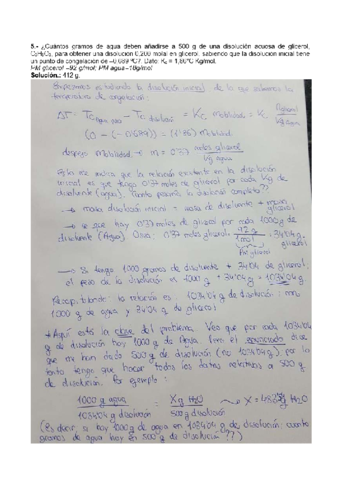 5.- ¿Cuántos gramos de agua deben añadirse a 500 g de una disolución acuosa de glicerol,
C₃H₈O₃, para obtener una disolución 0,200 molal en glicerol, sabiendo que la disolución inicial tiene
un punto de congelación de –0,689 ºC? Dato: Kc = 1,86ºC·Kg/mol.
PM glicerol =92 g/mol; PM agua=18g/mol
Solución.: 412 g.
Empezamos estudiando la disolución inicial de la que sabemos la
temperatura de congelación:
ΔT = Tc agua - Tc disolución = Kc · molalidad
(0 - (-0'689)) = (1'86) molalidad
despejo molalidad → m = 0'37 moles glicerol / Kg agua
indica que la relación existente en la disolución
inicial es que tengo 0'37 moles de glicerol por cada Kg de
disolvente (agua). ¿Cuánto pesaría la disolución completa??
→ masa disolución inicial = masa de disolvente + masa glicerol
→ se que hay 0'37 moles de glicerol por cada 1000 g de
disolvente (Agua). 0'37 moles glicerol · 92 g / 1 mol = 34'04 g. glicerol
PM glicerol
→ Si tengo 1000 gramos de disolvente + 34'04 de glicerol
el peso de la disolución es 1000 g + 34'04 g = 1034'04 g
la relación es 1034'04 g de disolución :
1000 g de agua y 34'04 g de glicerol.
* Aquí está la clave del problema. Veo que por cada 1034'04
g de disolución hay 1000 g de Agua. el enunciado dice
que me han dado 500 g de disolución (no 1034'04 g), por lo
tanto tengo que hacer todos los datos relativos a 500 g
de disolución. Por ejemplo:
1000 g agua / 1034'04 g disolución = X g H₂O / 500 g disolución → X = g H₂O
(Es decir, si hay 1000 g de agua en 1034'04 g de disolución: cuantos
gramos de agua hay en 500 g de disolución ??)